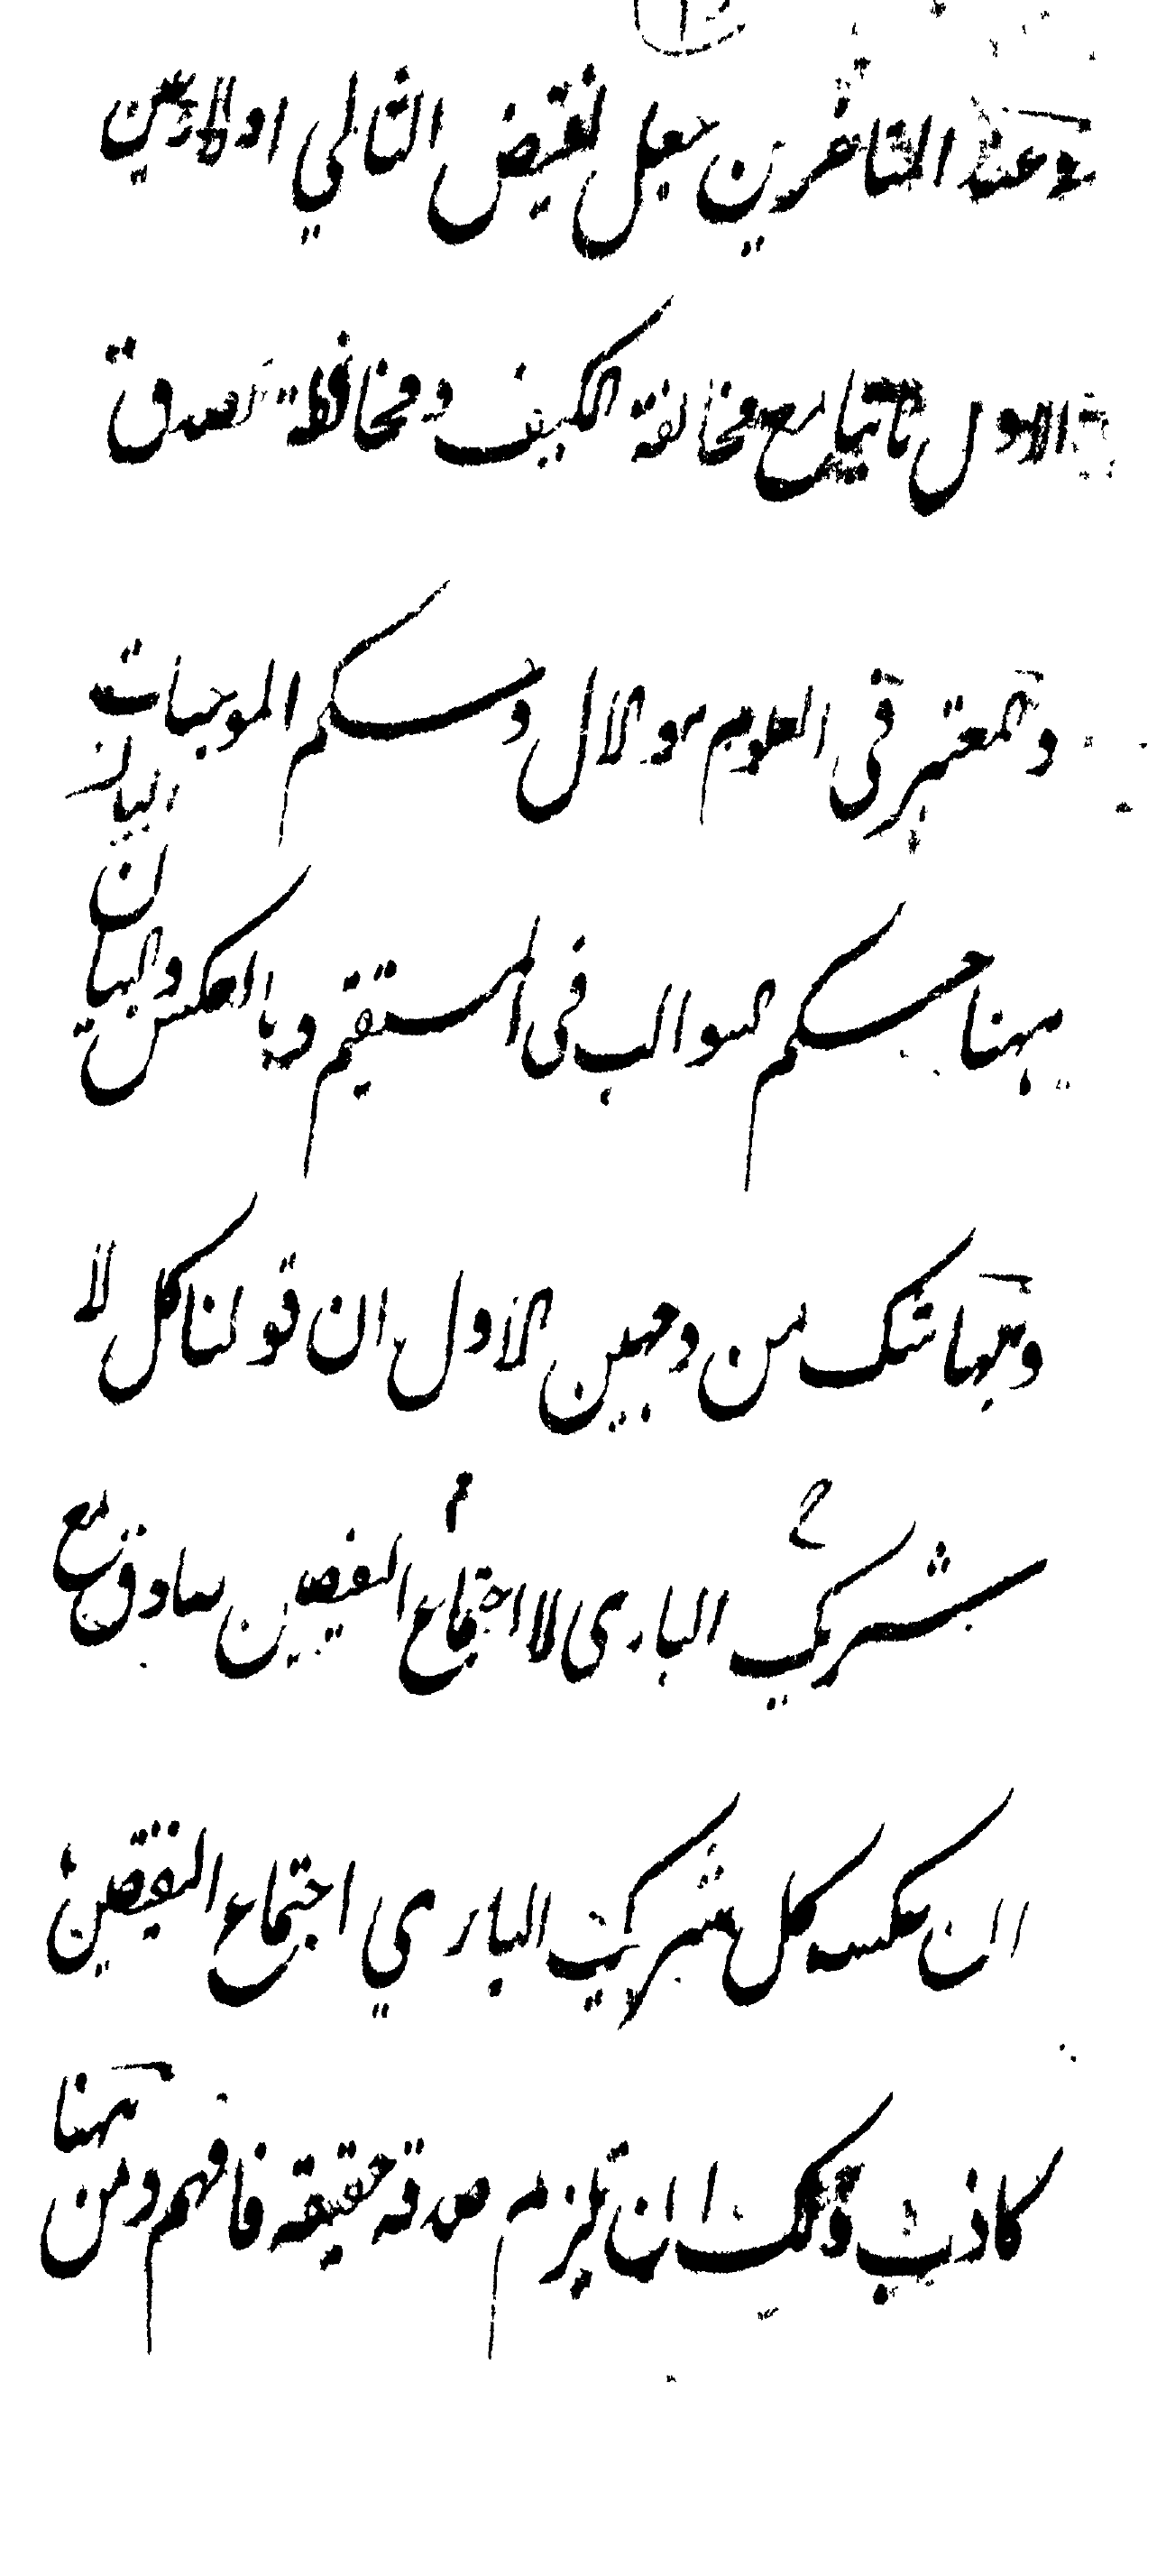 وعند المتاخرين جعل نقيض الثاني اولا وعين
الاول ثانيا مع مخالفة الكيف ومحافظة الصدق
والمعتبر في العلوم هو الاول وحكم الموجبات
ههنا حكم السوالب في المستقيم وبالعكس والبيان
البيان
وههنا شك من وجهين الاول ان قولنا كل لا
شريك الباري لا اجتماع النقيضين صادق مع
ان عكسه كل شريك الباري اجتماع النقيضين
كاذب ولك ان تلتزم صدقه حقيقة فافهم ومن ههنا